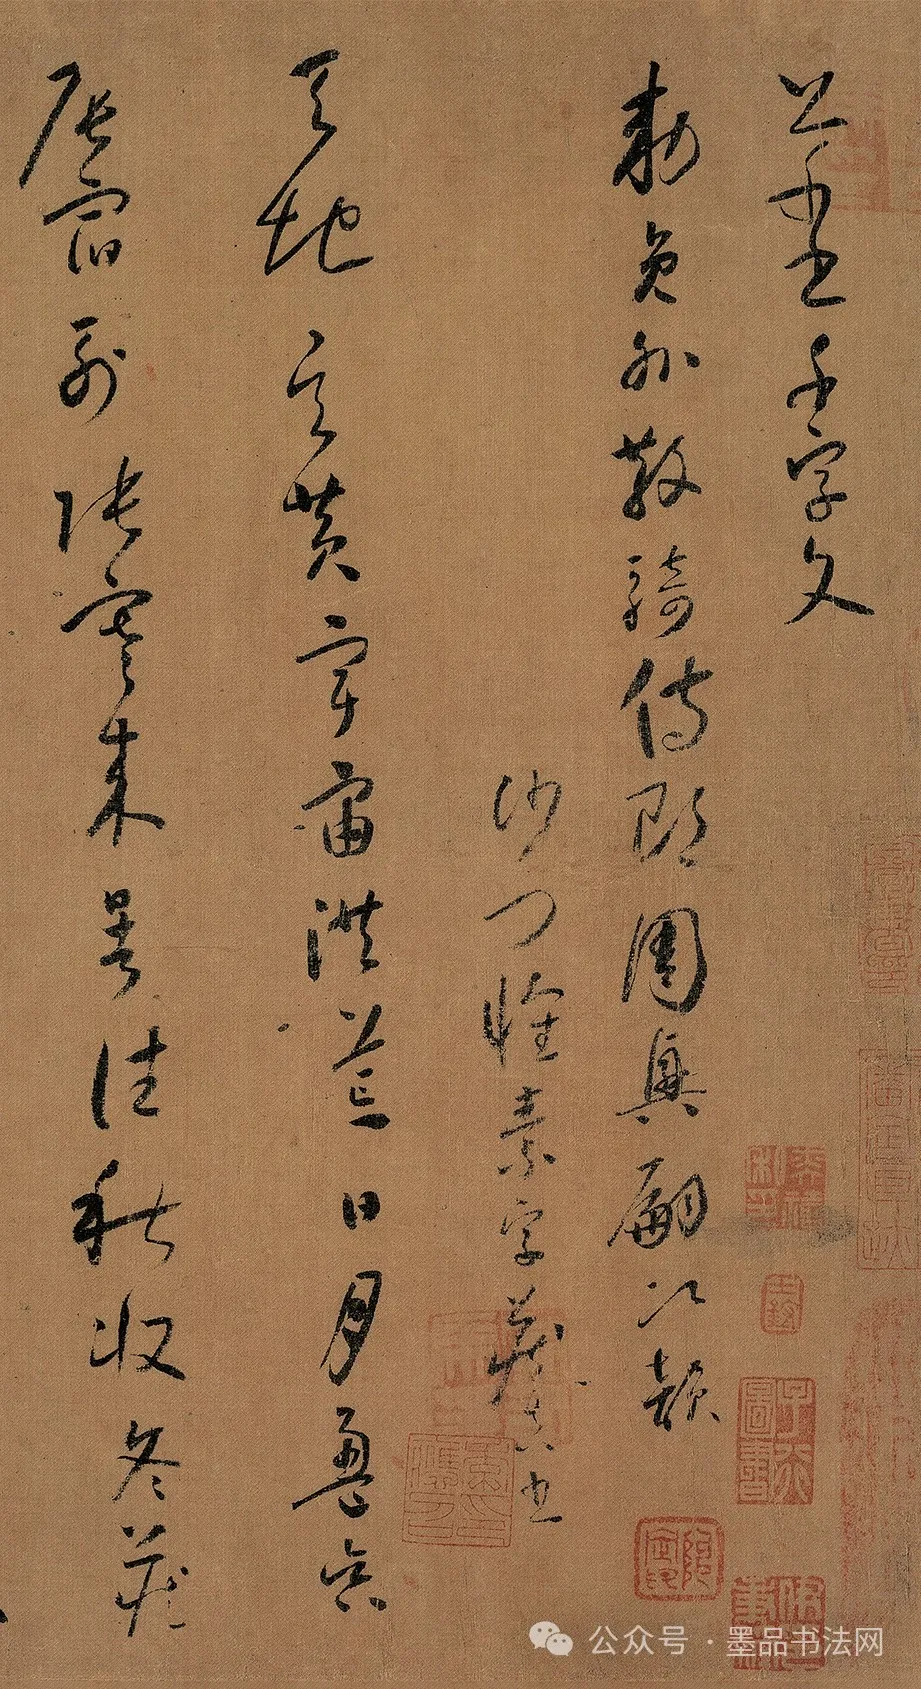 草書千字文
敕員外散騎侍郎周興嗣次韻
沙門懷素字藏真書
天地玄黃宇宙洪荒日月盈昃
辰宿列張寒來暑往秋收冬藏
公众号 · 墨品书法网